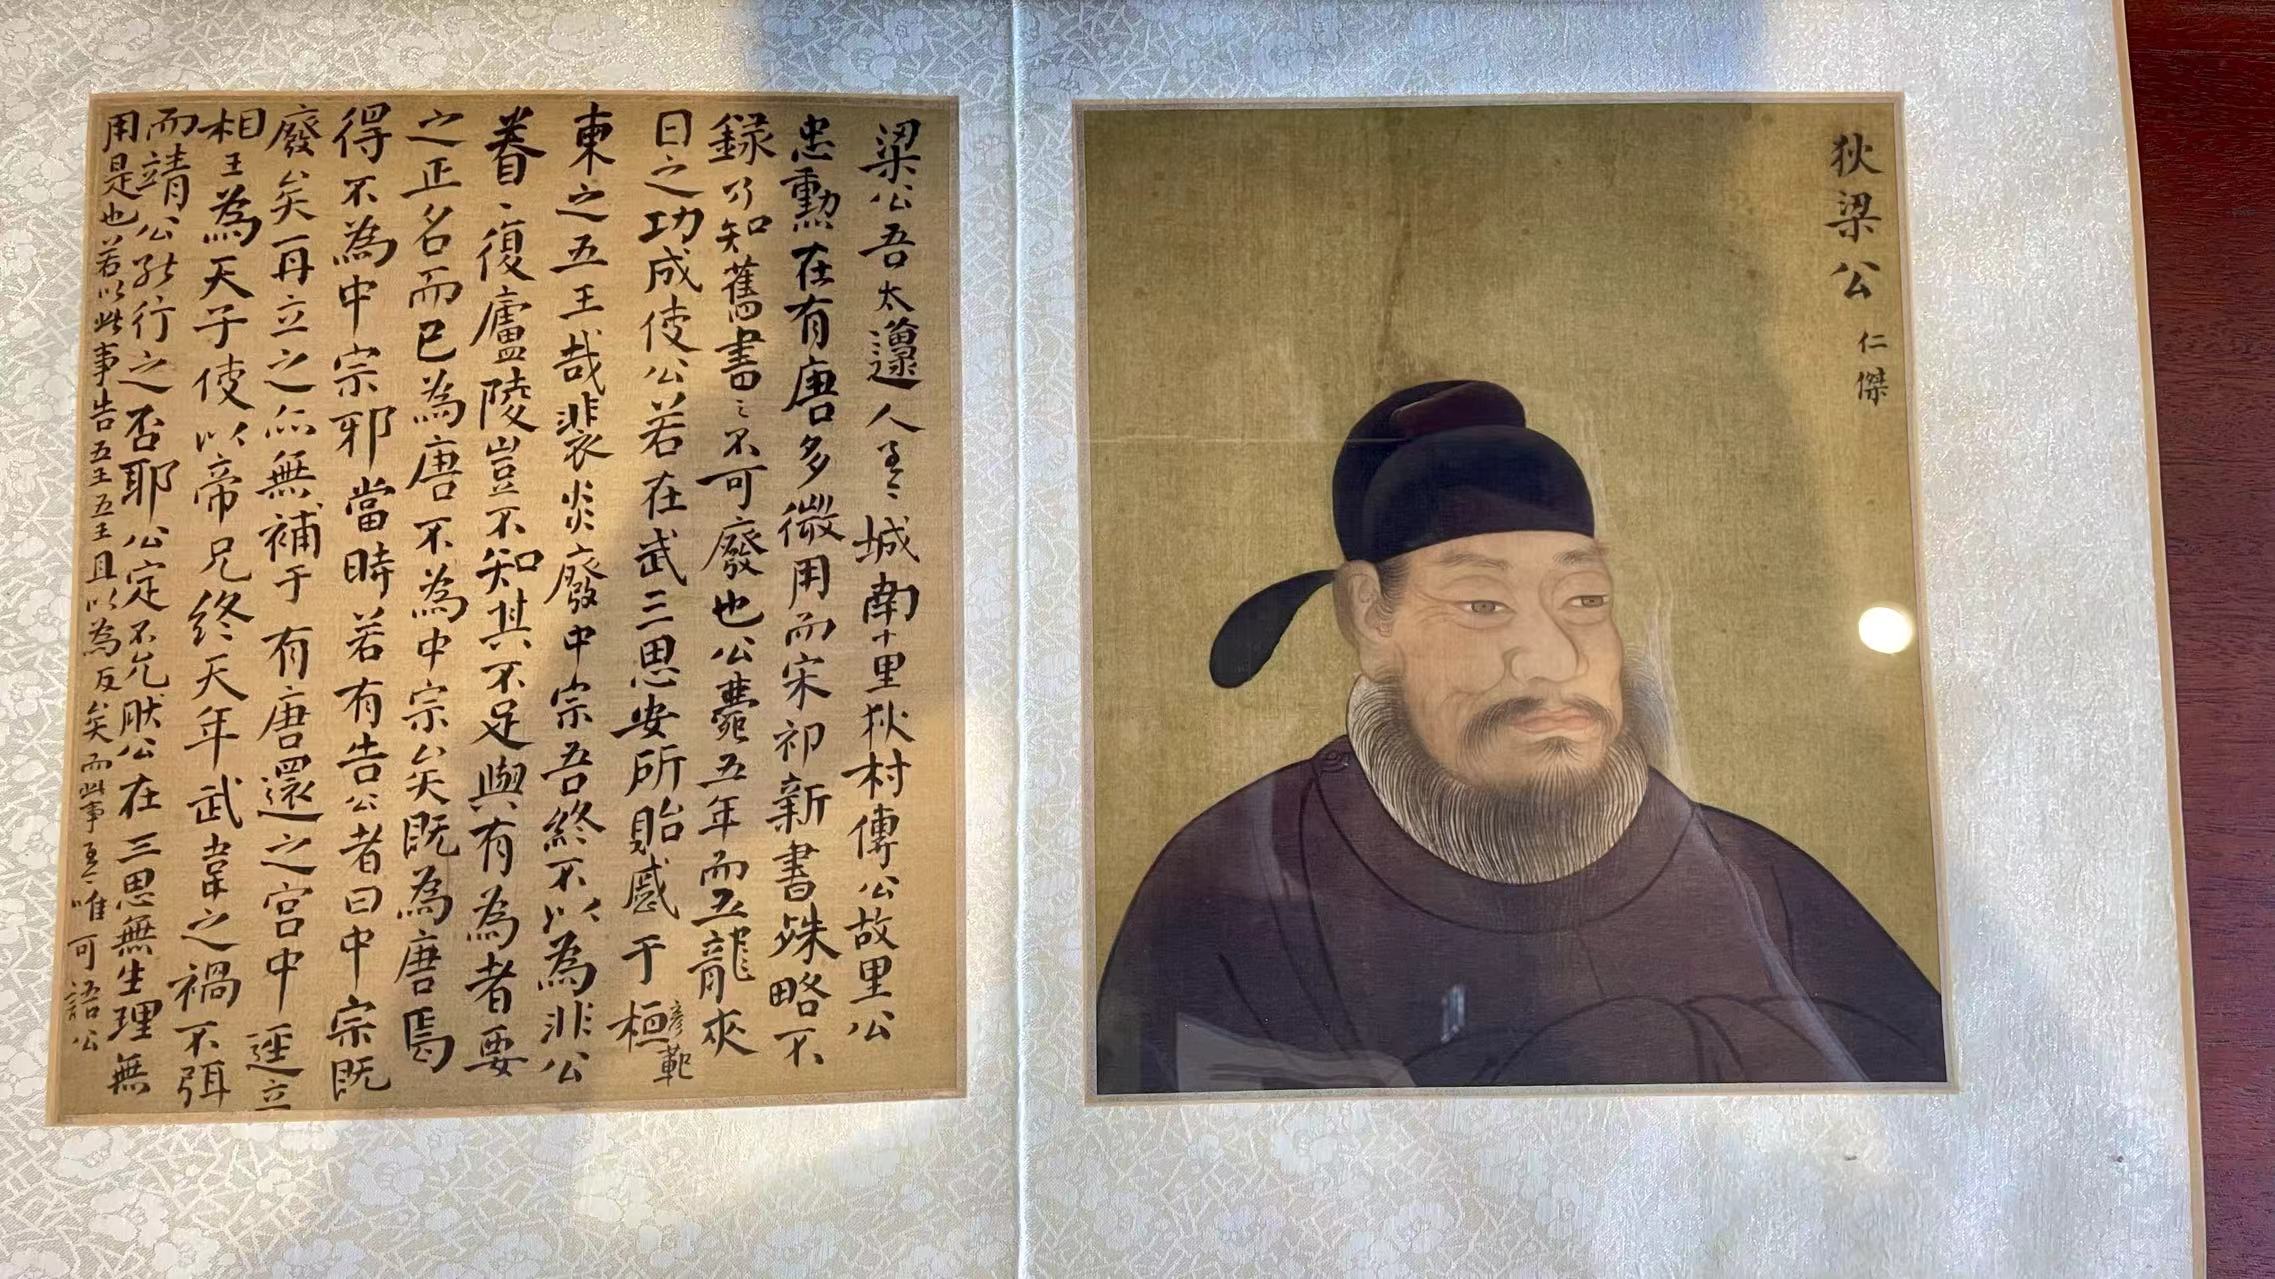 狄梁公
仁傑
梁公吾太邍人墓〻城南十里狄村傳公故里公
忠勳在有唐多微用而宋祁新書殊略不
錄乃知舊書〻不可廢也公薨五年而五龍夾
日之功成使公若在武三思安所貽慼于桓彥範
東之五王哉裴炎廢中宗吾終不以為非公
眷〻復廬陵豈不知其不足與有為者要
之正名而已為唐不為中宗矣既為唐焉
得不為中宗邪當時若有告公者曰中宗既
廢矣再立之亦無補于有唐還之宮中逕立
相王為天子使以帝兄終天年武韋之禍不弭
而靖公能行之否耶公定不允肰公在三思無生理無
用是也若以此事告五王五王且以為反矣而此事 唯可語公